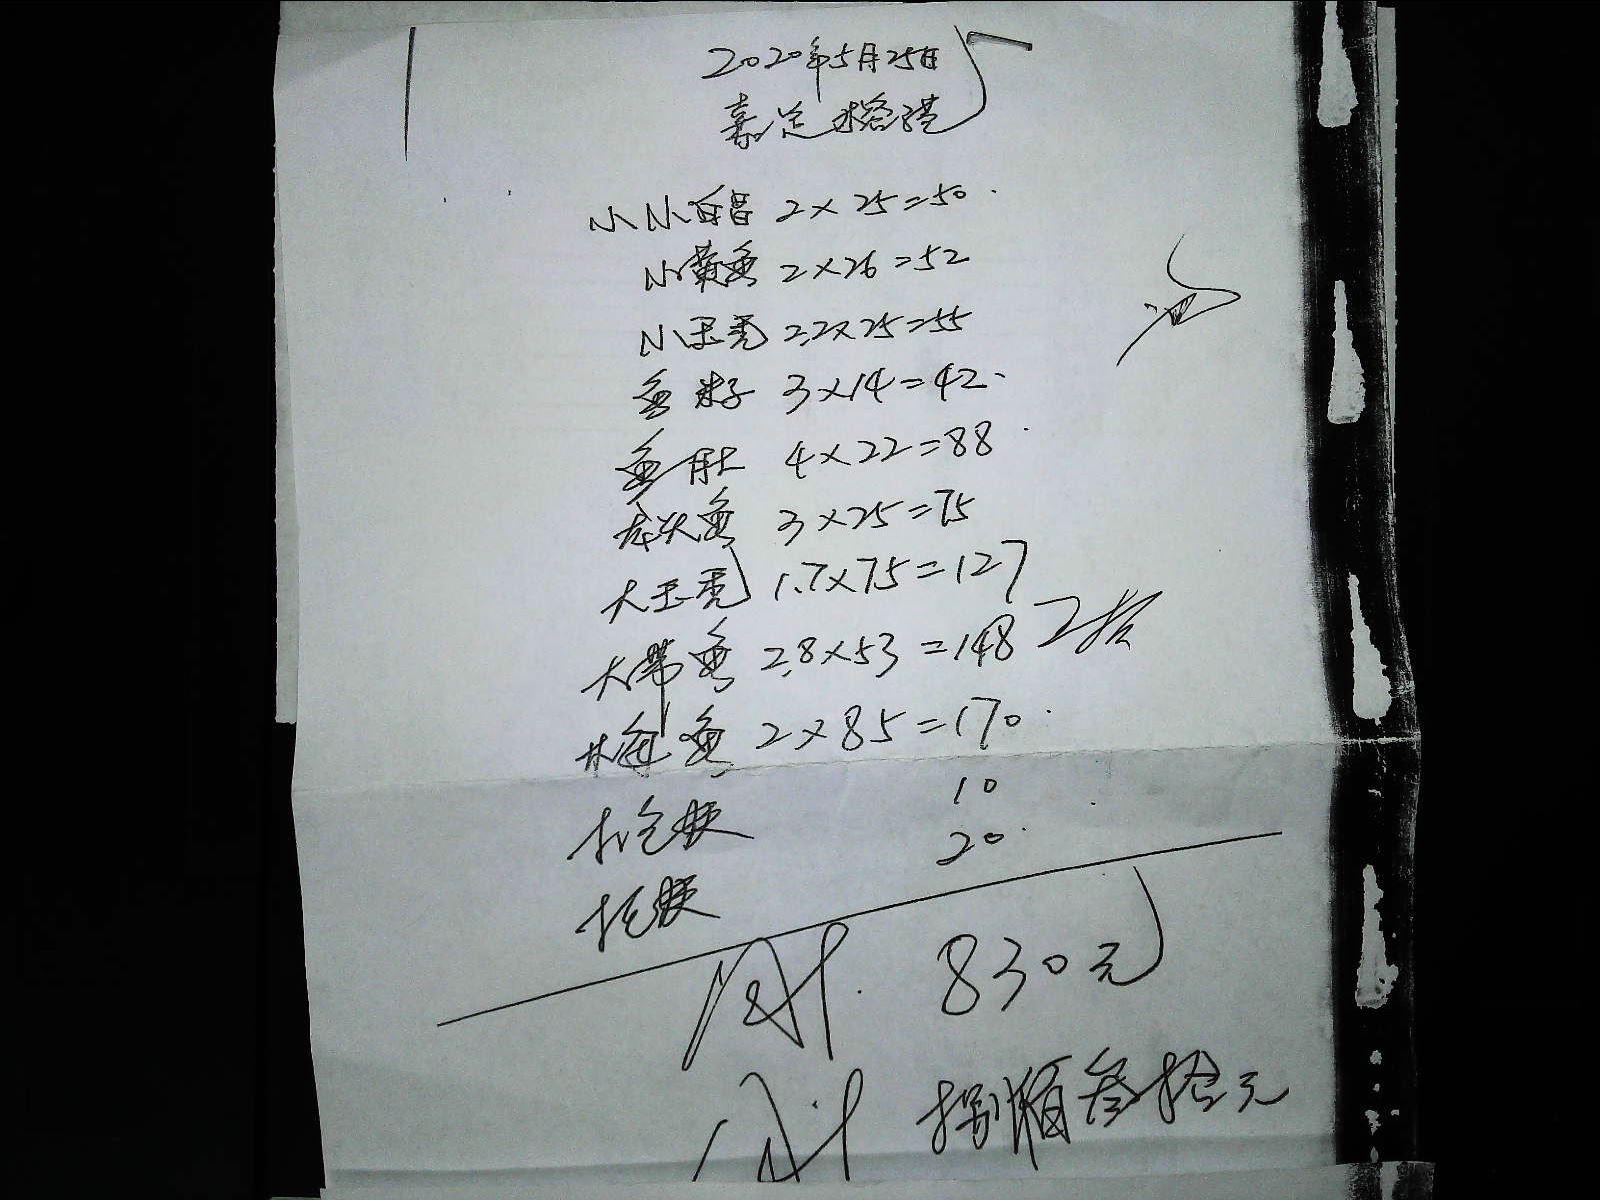 2020年5月25日
小小白昌 2×25=50
小黄鱼 2×26=52
小玉秃 2.2×25=55
鱼籽 3×14=42
鱼肚 4×22=88
龙头鱼 3×25=75
大玉秃 1.7×75=127
大带鱼 2.8×53=148
鱼 2×85=170
10
20
830元
捌佰叁拾元